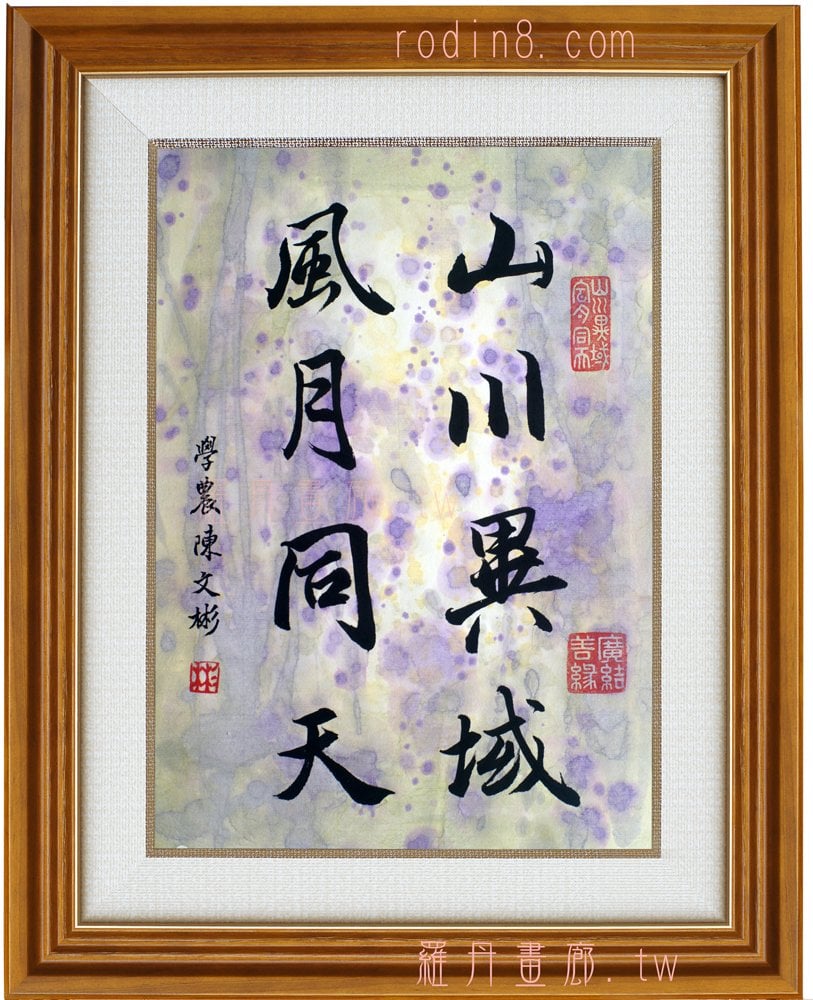 rodin8.com
山川異域
風月同天
學農陳文彬
山川異域
風月同天
廣結
善緣
羅丹畫廊.tw